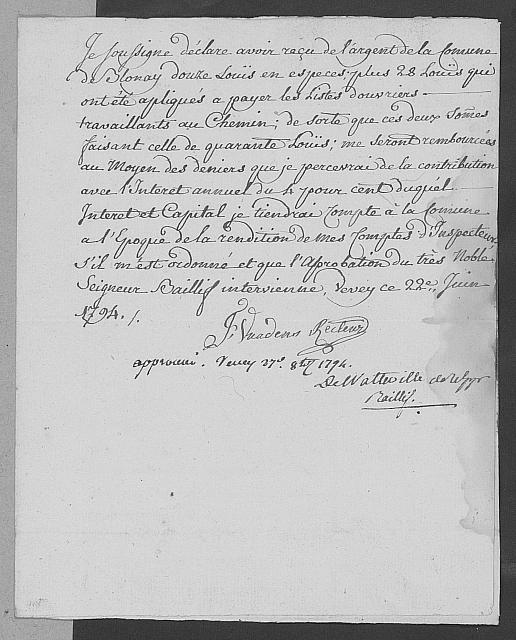 Je soussigné déclare avoir reçu de l'argent de la Comune
de Blonay douze Loüis en especes; plus 28 Loüis qui
ont été apliqués a payer les Listes douvriers
travaillants au Chemin; de sorte que ces deux Somes
faisant celle de quarante Loüis; me seront rembourcées
au Moyen des deniers que je percevrai de la contribution
avec l'Interet annuel du 4 pour cent duquel
Interet et Capital je tiendrai Compte à la Comune
a l'Epoque de la rendition de mes Comptes d'Inspecteur
S'il m'est ordonné et que l'Aprobation du très Noble
Seigneur Baillif intervienne, Vevey ce 22e. Juin
1794. /.
Vuadens
approuvé. Vevey 8br 1794.
De Watteville
Baillif.